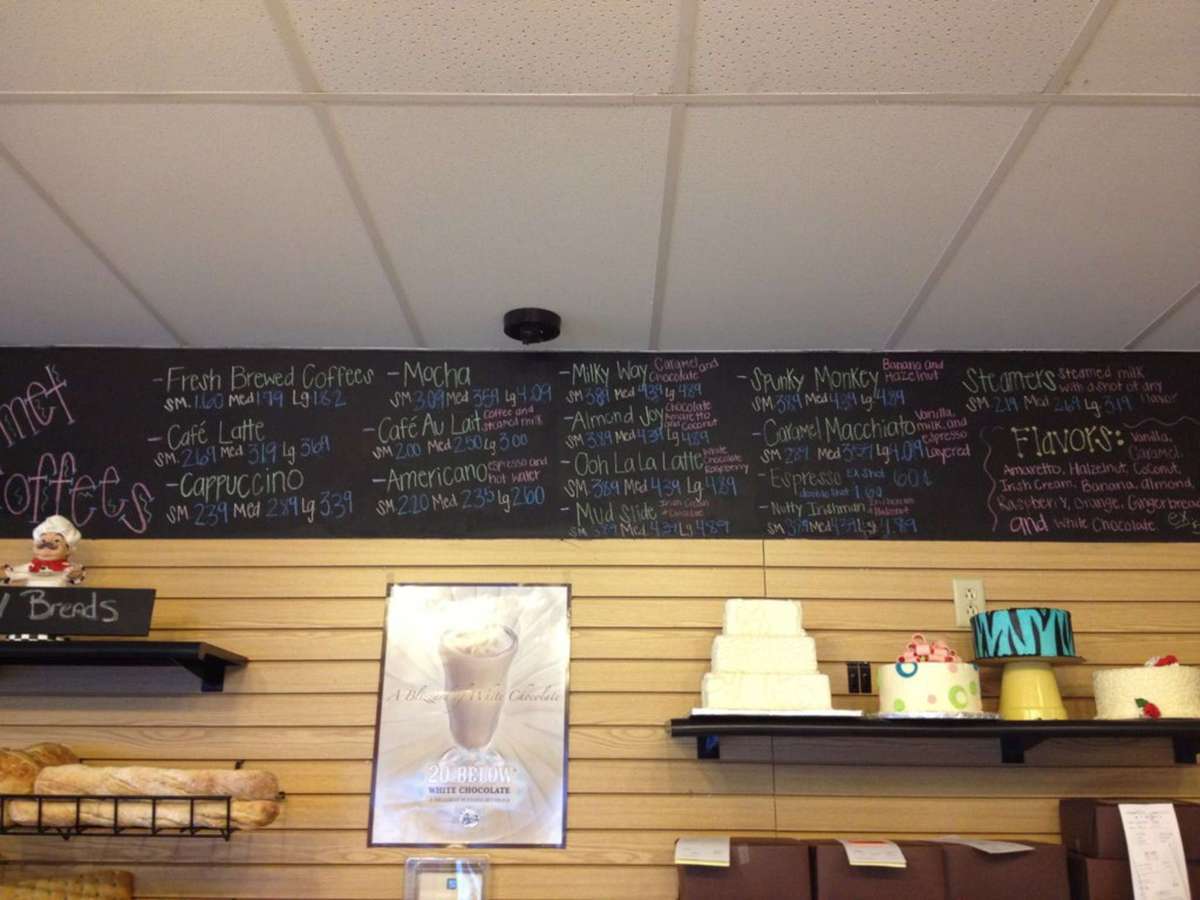 Coffees
-Fresh Brewed Coffees
SM. 1.60 Med 1.79 Lg 1.82
-Café Latte
SM. 2.69 Med 3.19 Lg 3.69
-Cappuccino
SM 2.39 Med 2.89 Lg 3.39
-Mocha
SM. 3.09 Med 3.59 Lg 4.09
-Café Au Lait Coffee and steamed milk
SM 2.00 Med 2.50 Lg 3.00
-Americano Espresso and hot water
SM 2.20 Med 2.35 Lg 2.60
-Milky Way Caramel and Chocolate
SM 3.89 Med 4.39 Lg 4.89
-Almond Joy Chocolate Amaretto and Coconut
SM 3.89 Med 4.39 Lg 4.89
-Ooh La La Latte White Chocolate Raspberry
SM. 3.89 Med 4.39 Lg 4.89
-Mud Slide
SM 3.89 Med 4.39 Lg 4.89
-Spunky Monkey Banana and Hazelnut
SM 3.89 Med 4.39 Lg 4.89
-Caramel Macchiato Vanilla, milk, and espresso layered
SM. 2.89 Med Lg 4.09
-Espresso Ex Shot 60¢
double shot
-Nutty Irishman
SM 3.89 Med 4.39 Lg 4.89
Steamers Steamed milk with a shot of any flavor
SM. 2.19 Med 2.69 Lg 3.19
Flavors: Vanilla, Caramel,
Amaretto, Halzelnut, Coconut,
Irish Cream, Banana, almond,
Raspberry, Orange, Gingerbread
and White Chocolate
Breads
A Blizzard of White Chocolate
20 BELOW
WHITE CHOCOLATE